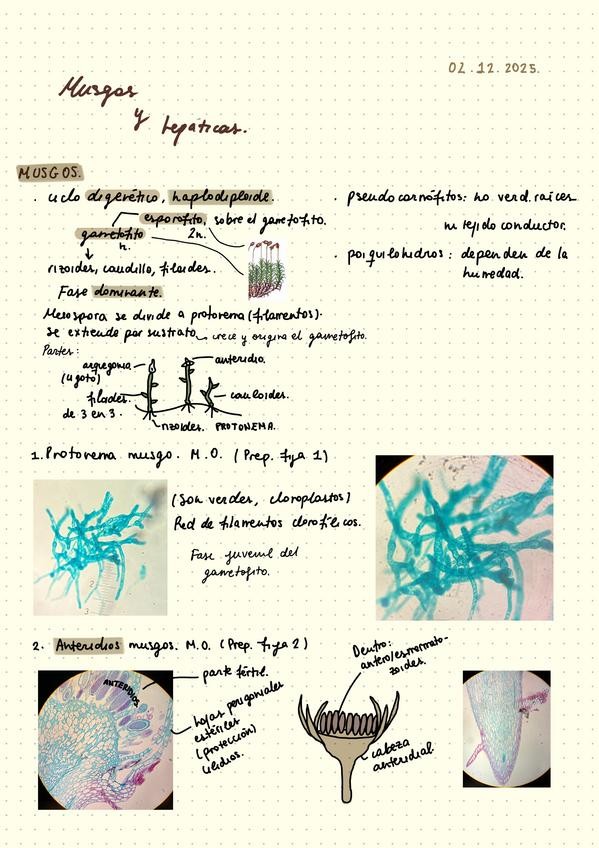 02.12.2025.
Musgos
y
hepáticas.
MUSGOS.
. ciclo digenético, haplodiploide.
esporofito, sobre el gametofito.
gametofito 2n.
n.
rizoides, caulidio, filoides.
Fase dominante.
. pseudocormófitos: no verd. raíces
ni tejido conductor.
. poiquilohidros: dependen de la
humedad.
Meiospora se divide a protonema (filamentos).
se extiende por sustrato crece y origina el gametofito.
Partes:
arquegonio anteridio.
filoides cauloides.
de 3 en 3.
rizoides. PROTONEMA.
1. Protonema musgo. M.O. (Prep. fija 1)
(Son verdes, cloroplastos)
Red de filamentos clorofílicos.
Fase juvenil del
gametofito.
2
3
2. Anteridios musgos. M.O. (Prep. fija 2)
ANTERIDIOS
parte fértil.
hojas perigoniales
estériles
(protección)
Dentro:
antero/espermato-
zoides.
cabeza
anteridial.